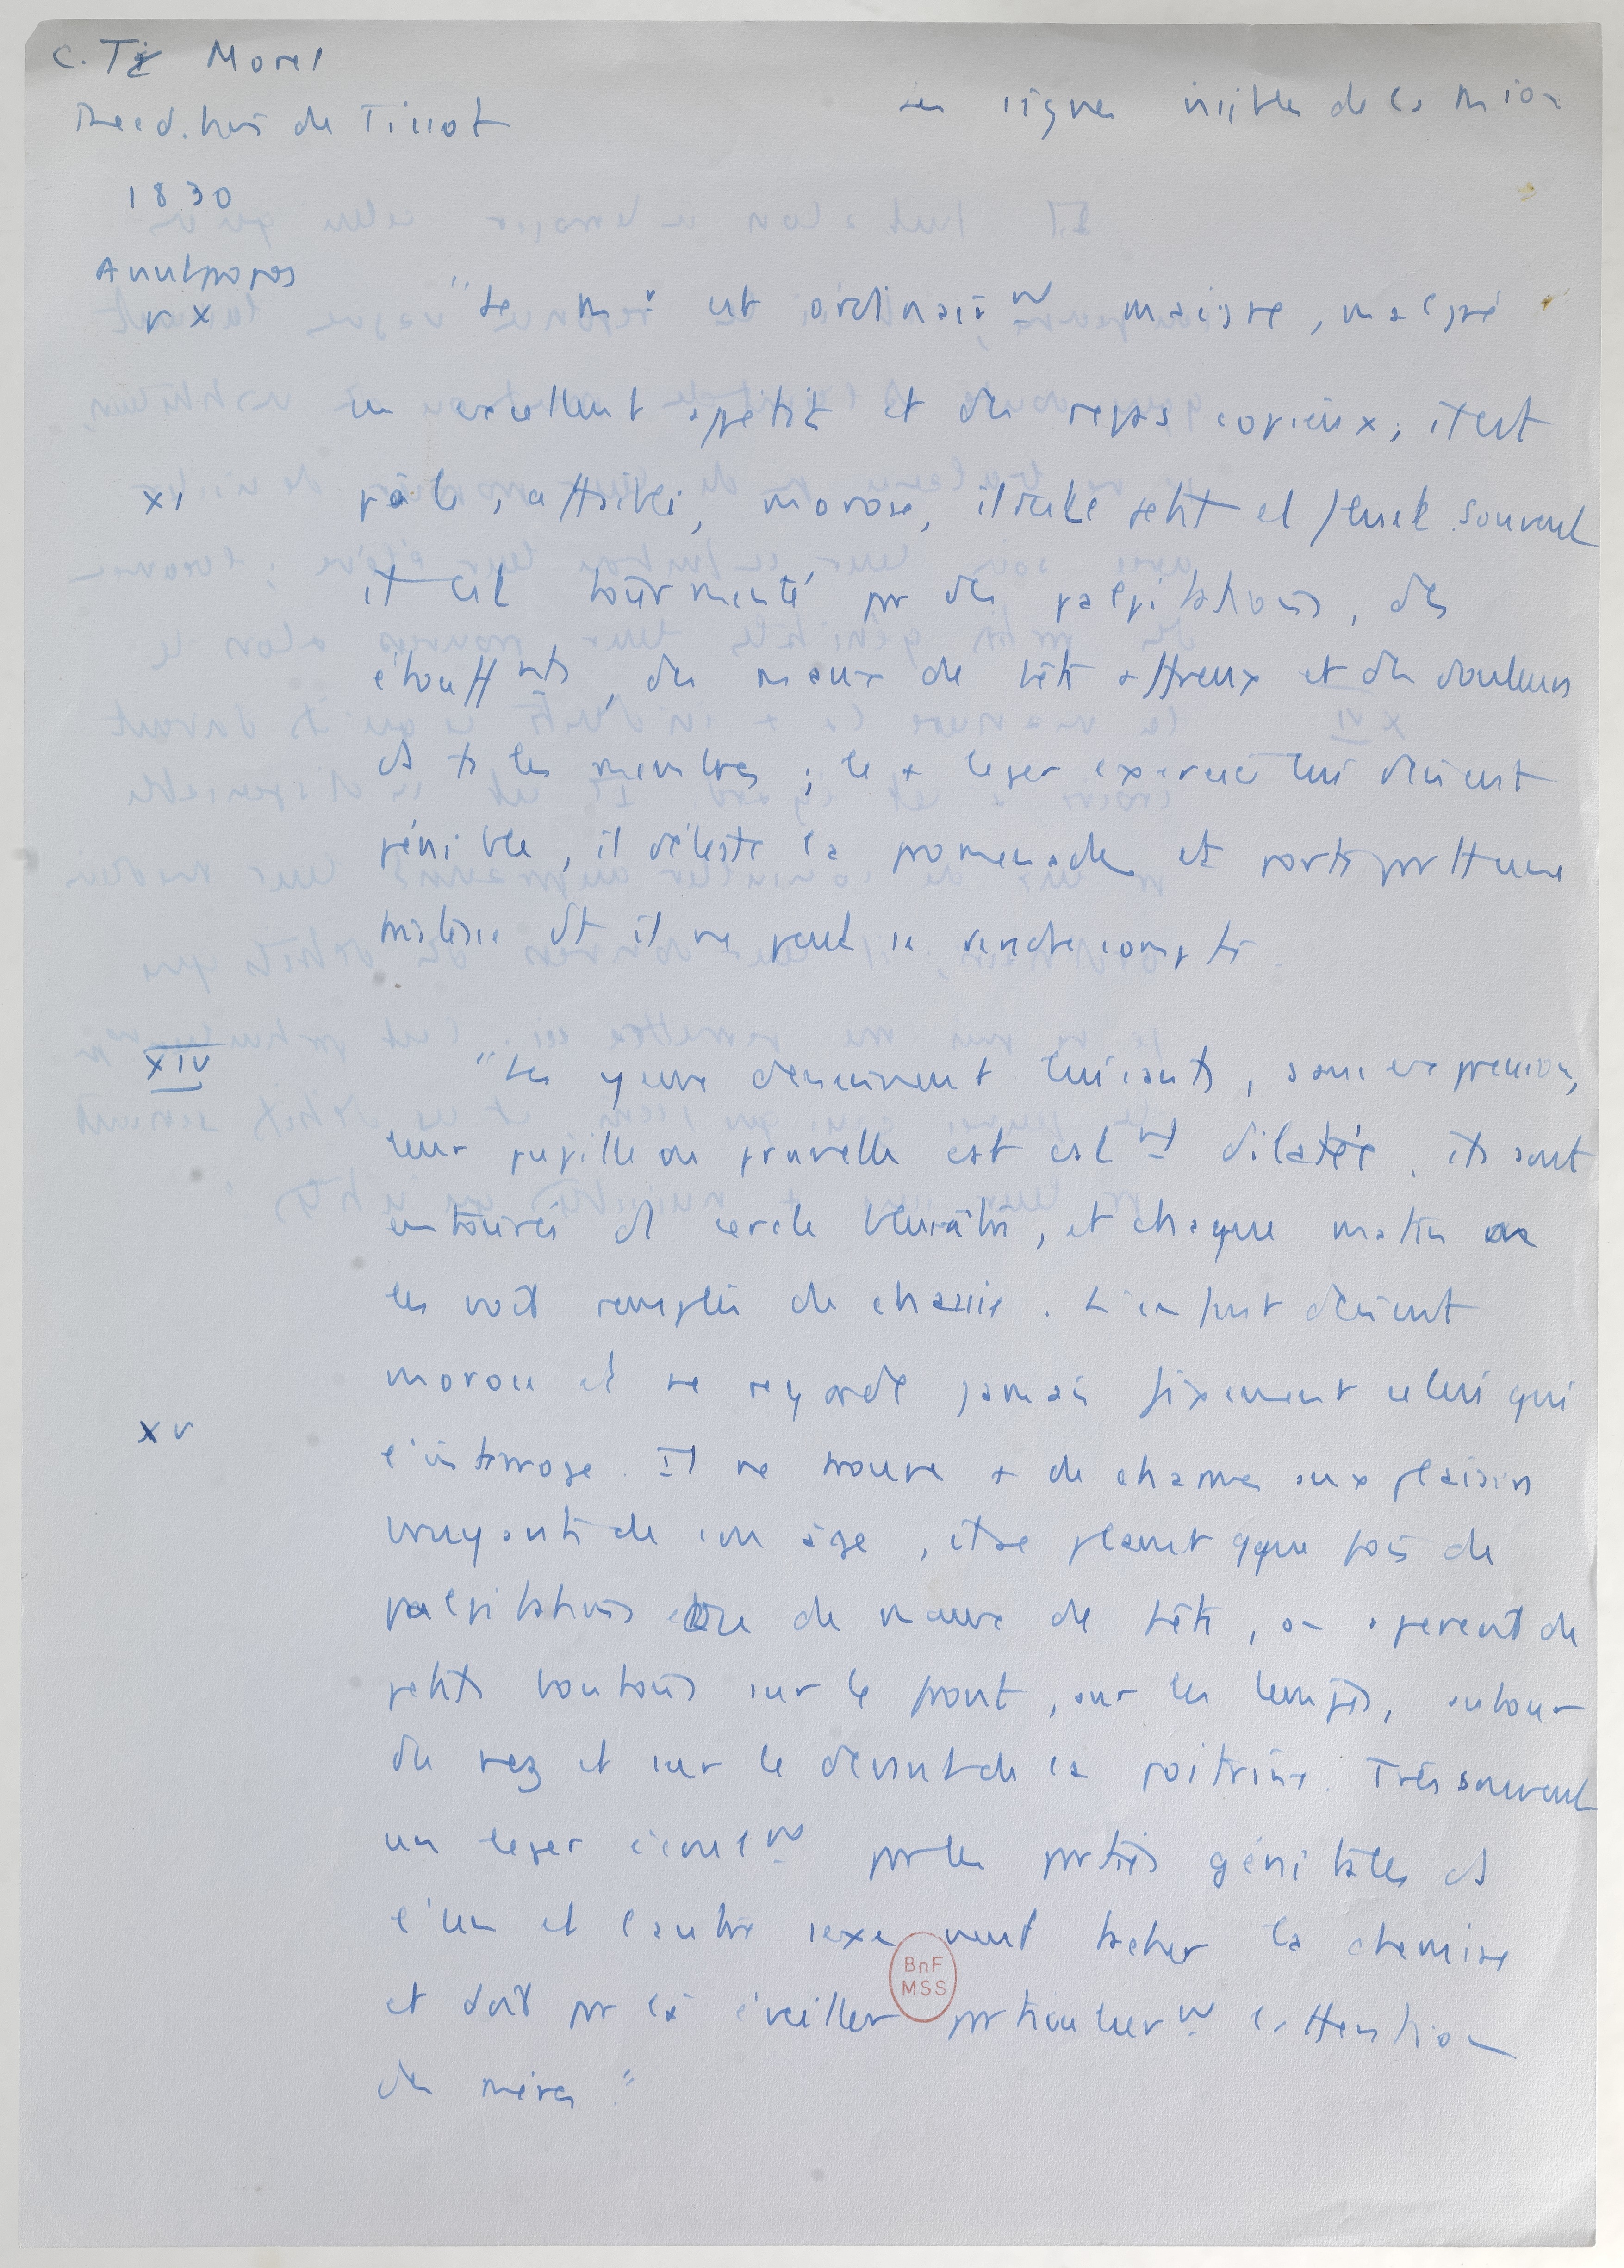 C. Th Morel
Les signes visibles de la M ion
Réed. de Tissot
1830
Avant propos
p X
"Le m. est ordinairt maigre, malgré
un excellent apétit et des repas copieux, il est
XI
pâle, affaibli, morose, il parle petit et pensé souvent
il est tourmenté pr des palpitations, des
étouffmts, des maux de tête affreux et des douleurs
ds ts les membres ; le + leger exercice lui devient
pénible, il déteste la promenade et porte prtt une
tristesse dt il ne peut se rendre compte
XIV
"Les yeux deviennent luisants, sans expression,
leur pupille ou prunelle est est mt dilatée, ils sont
entourés d cercle bleuâtre, et chaque matin on
les voit remplis de chassie. L'enfant devient
morose et ne regarde jamais fixement celui qui
XV
l'interroge. Il ne trouve + de charme aux plaisirs
bruyants de son âge, il se plaint qque fois de
palpitations de maux de tête, on aperçoit de
petits boutons sur le front, sur les tempes, autour
du nez et sur le devant de la poitrine. Très souvent
un leger écoulmt par les parties génitales ds
l'un et l'autre sexe vient tacher la chemise
et doit pr là éveiller prticuliermt l'attention
des mères"
BnF
MSS